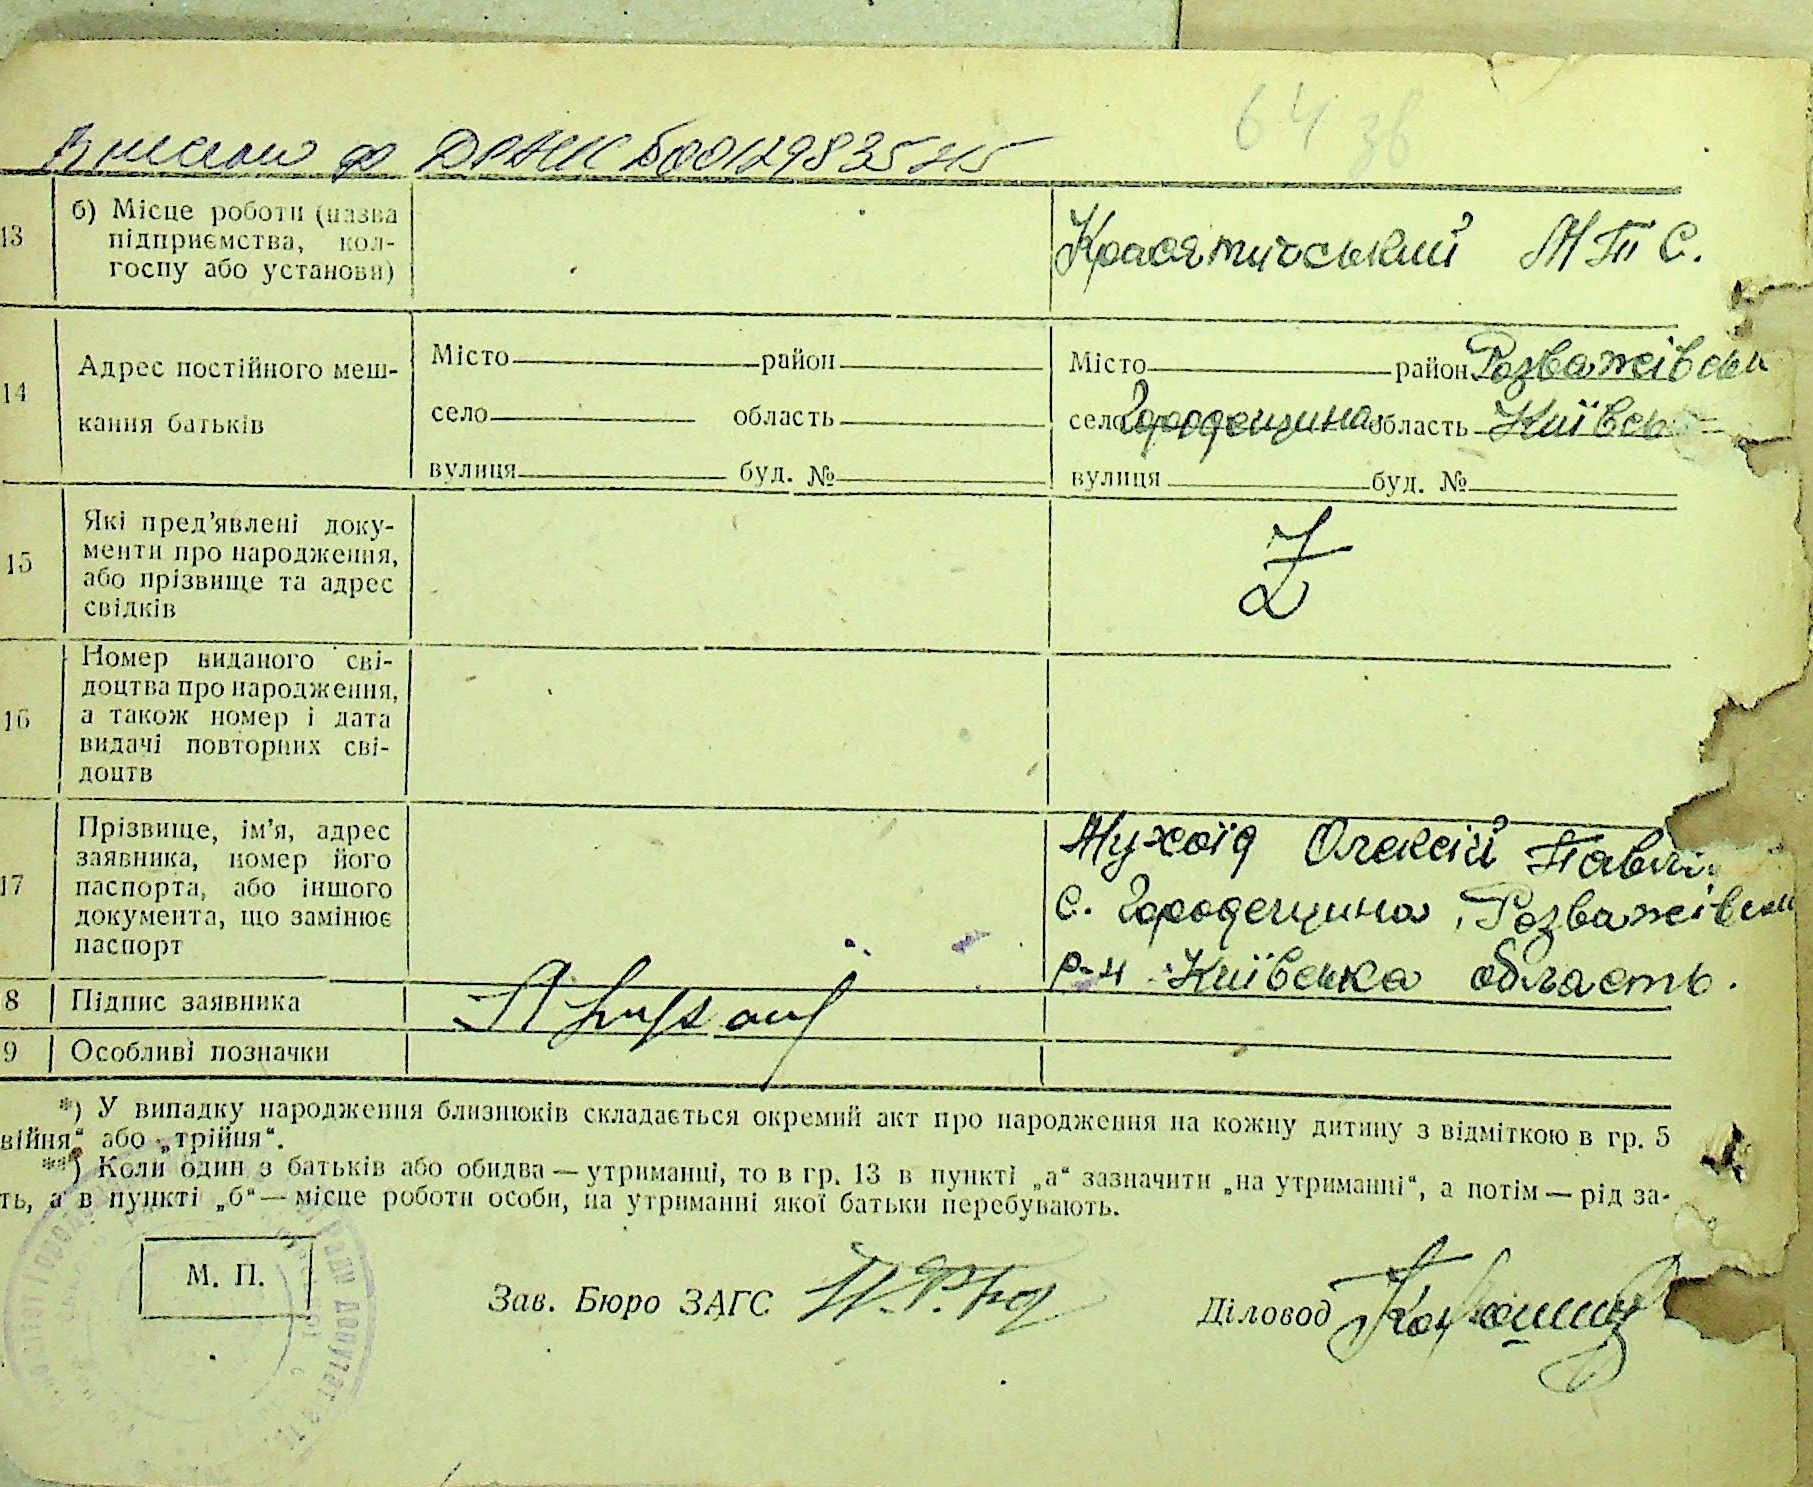 64 зв
Внесено до ДРАЦС
13 б) Місце роботи (назва підприємства, кол-
госпу або установи)
Красятичський М Т С.
14 Адрес постійного меш-
кання батьків
Місто район
село область
вулиця буд. №
Місто район Розважівськ
село Городещина область Київськ
вулиця буд. №
15 Які пред'явлені доку-
менти про народження,
або прізвище та адрес
свідків
Z
16 Номер виданого сві-
доцтва про народження,
а також номер і дата
видачі повторних сві-
доцтв
17 Прізвище, ім'я, адрес
заявника, номер його
паспорта, або іншого
документа, що замінює
паспорт
Мухоїд Олексій Павл
с. Городещина, Розважівськ
р-н Київська область.
8 Підпис заявника
9 Особливі позначки
*) У випадку народження близнюків складається окремий акт про народження на кожну дитину з відміткою в гр. 5
війня" або „трійня".
**) Коли один з батьків або обидва — утриманці, то в гр. 13 в пункті „а" зазначити „на утриманні", а потім — рід за-
ть, а в пункті „б" — місце роботи особи, на утриманні якої батьки перебувають.
М. П.
Зав. Бюро ЗАГС
Діловод